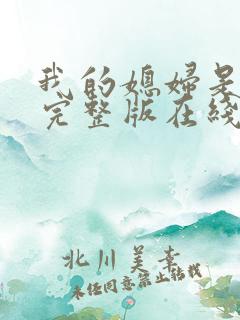 我的媳妇是
完整版在线
北川美幸
未经同意禁止转载